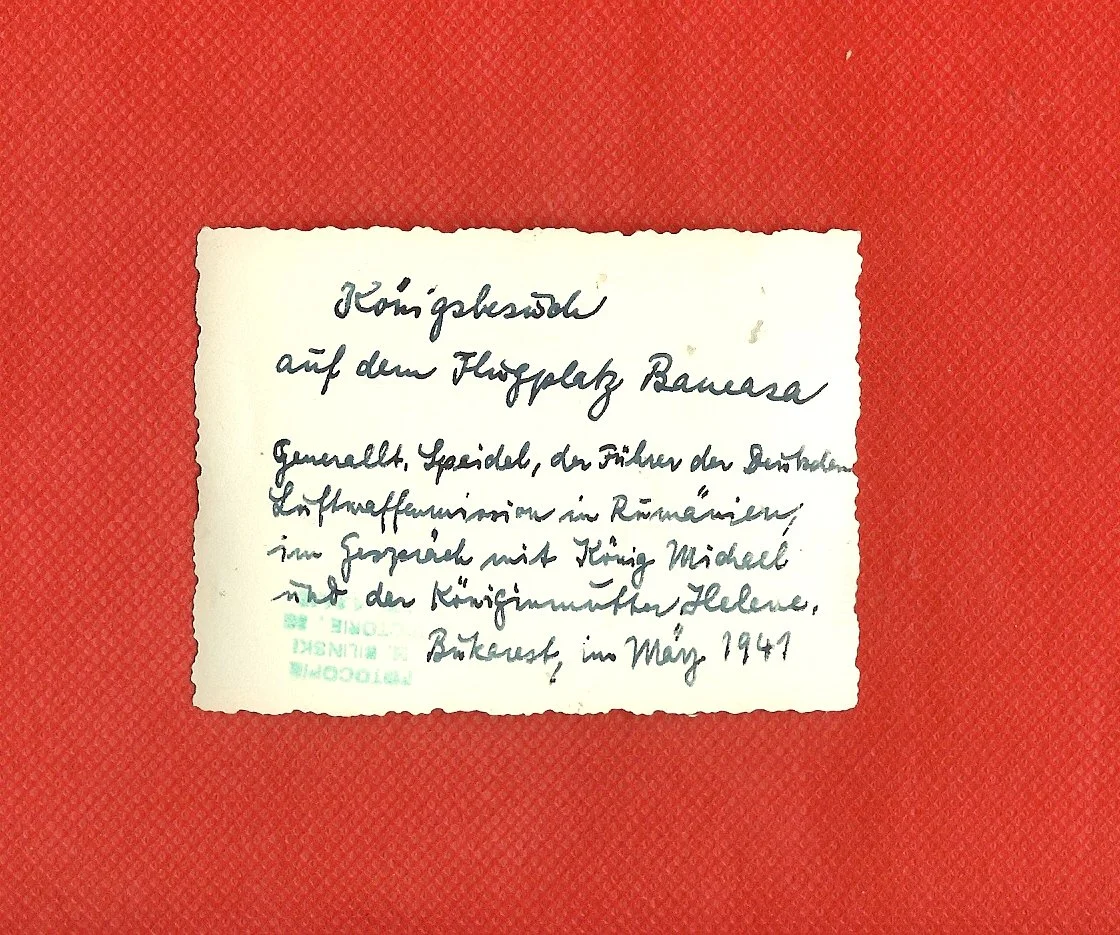 Königsbesuch
auf dem Flugplatz Baneasa
Generallt. Speidel, der Führer der Deutschen
Luftwaffenmission in Rumänien,
im Gespräch mit König Michael
und der Königinmutter Helene.
Bukarest, im März 1941
FOTOCOPIE
BILINSKI